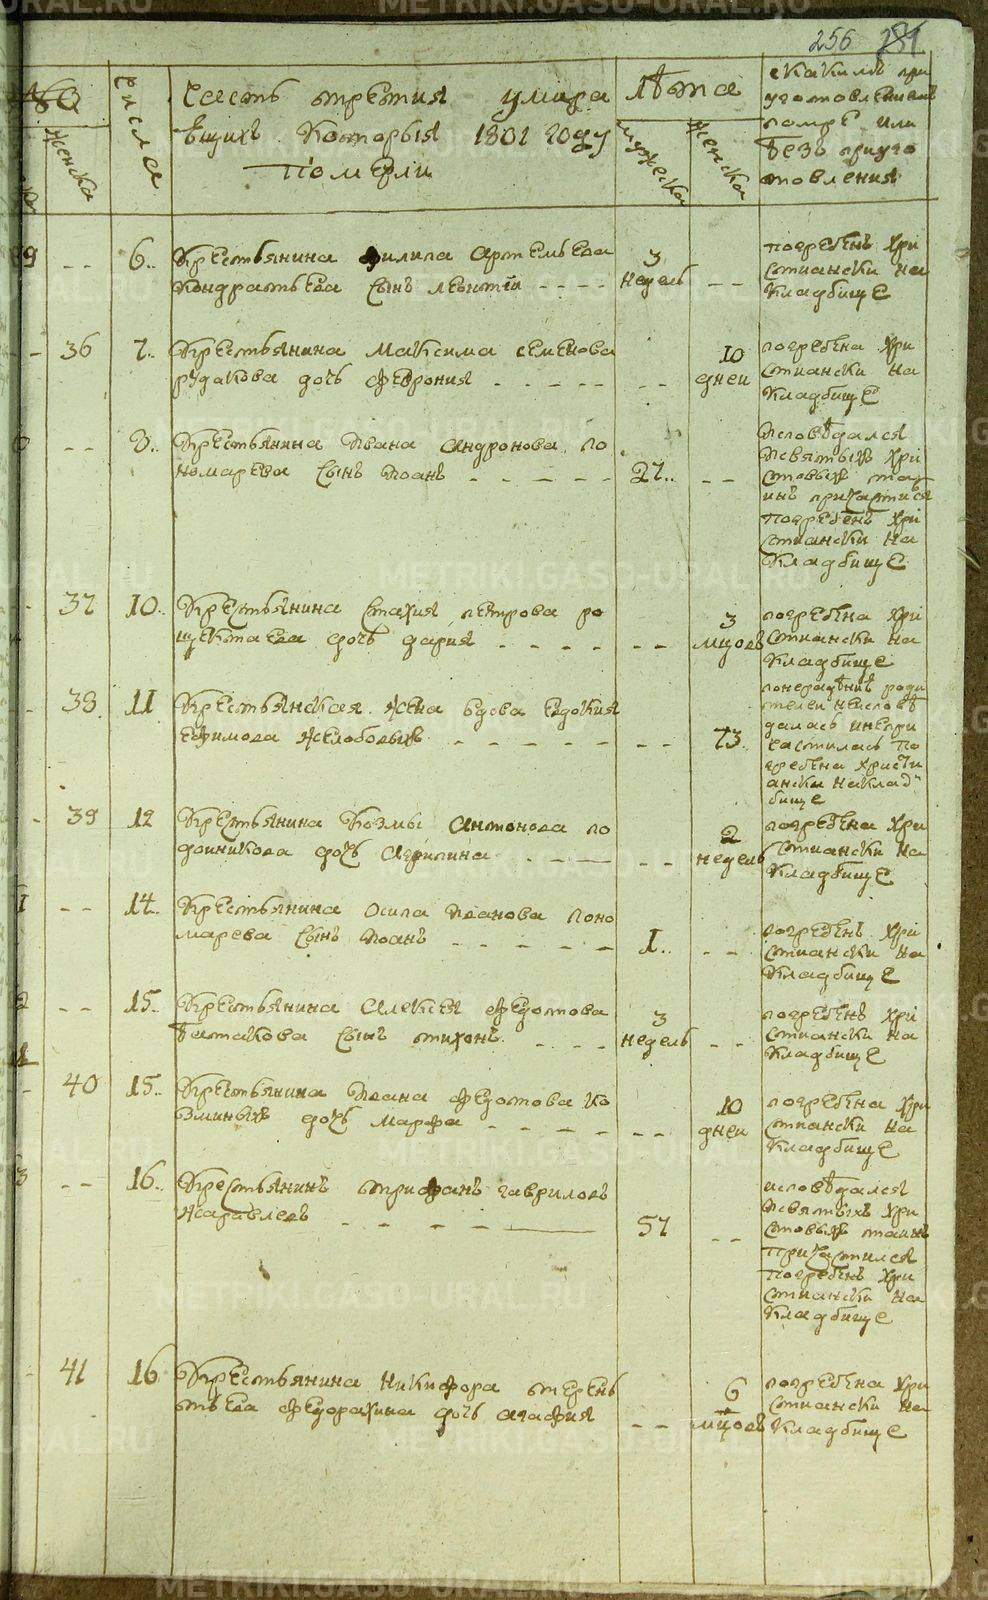 256
Числа
Часть третия умира
ющихъ которыя 1801 году
померли
Лѣта
мужеска
женска
женска
с какимъ при
уготовлениемъ
помре или
безъ приуго
товления
6.. Крестьянина Филипа Артемьева 3
Кондратьева сынъ Леонтiй - - - - недель - -
погребенъ хри
стиански на
кладбище
36 7.. Крестьянина Максима Семенова 10
Рудакова дочь Феврония - - - - - - - дней
погребена хри
стиански на
кладбище
- - Крестьянина Ивана Андронова по
номарева сынъ Иоанъ - - - - - 27.. - -
исповѣдался
и святыхъ хри
стовыхъ та
инъ причастися
погребенъ хрi
стиански на
кладбище
37 10.. Крестьянина Стахия Петрова ро 3
щектаева дочь Дария - - - - - - - мцовъ
погребена хрi
стиански на
кладбище
38 11 Крестьянская жена вдова Евдокия
Ефимова Желобовыхъ - - - - - - - 73.
по нерадѣнию роди
телей не исповѣ
далась и не при
частилась по
гребена христи
ански на клад
бище
39 12 Крестьянина Козмы Антонова по 2
дойникова дочь Агрипина - - - недель
погребена хри
стиански на
кладбище
- - 14.. Крестьянина Осипа Иванова поно
марева сынъ Иоанъ - - - - - 1.. - -
погребенъ хри
стиански на
кладбище
- - 15.. Крестьянина Алексея Федотова 3
Батакова сынъ Тихонъ - - - - недель - -
погребенъ хрi
стиански на
кладбище
40 15.. Крестьянина Ивана Федотова Ко 10
зминыхъ дочь Марфа - - - - - - - дней
погребена хри
стиански на
кладбище
- - 16.. Крестьянинъ Трифанъ Гавриловъ
Жаравлевъ - - - - 57 - -
исповѣдался
и святыхъ хри
стовыхъ таинъ
причастился
погребенъ хри
стиански на
кладбище
41 16 Крестьянина Никифора Терень 6
тьева Федорахина дочь Агафия - - мцовъ
погребена хри
стиански на
кладбище
METRIKI.GASO-URAL.RU